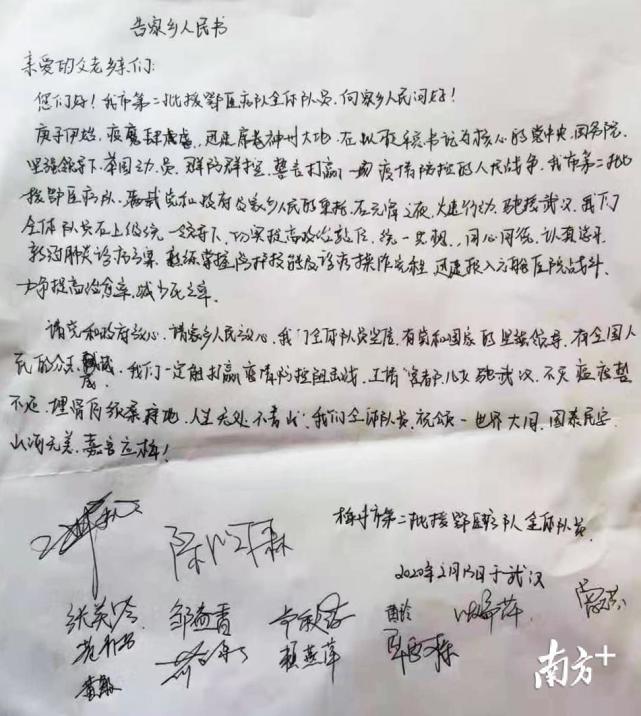 告家乡人民书
亲爱的父老乡亲们:
您们好!我市第二批援鄂医疗队全体队员,向家乡人民问好!
庚子伊始,疫魔肆虐,迅速席卷神州大地。在以习主席书记为核心的党中央、国务院
坚强领导下,举国动员,群防群控,誓言打赢一场疫情防控的人民战争,我市第二批
援鄂医疗队,肩载党和政府及家乡人民的重托,在元宵之夜,火速行动,驰援武汉,我们
全体队员在上级统一领导下,切实提高政治站位,统一思想,同心同德,认真学习
新冠肺炎诊疗方案,熟练掌握防护技能及诊疗操作流程,迅速投入方舱医院战斗,
力争提高治愈率,减少死亡率。
请党和政府放心,请家乡人民放心,我们全体队员坚信,有党和国家的坚强领导,有全国人
民的众志成城,我们一定能打赢疫情防控阻击战。工情客都儿女驰武汉,不灭瘟疫誓
不还,埋骨何须桑梓地,人生无处不青山,我们全体队员,祝颂一世界大同,国泰民安,
山河无恙,嘉音立梅!
梅州市第二批援鄂医疗队全体队员
2020年2月13日于武汉
张英玲 邹益青
赖燕萍
南方+